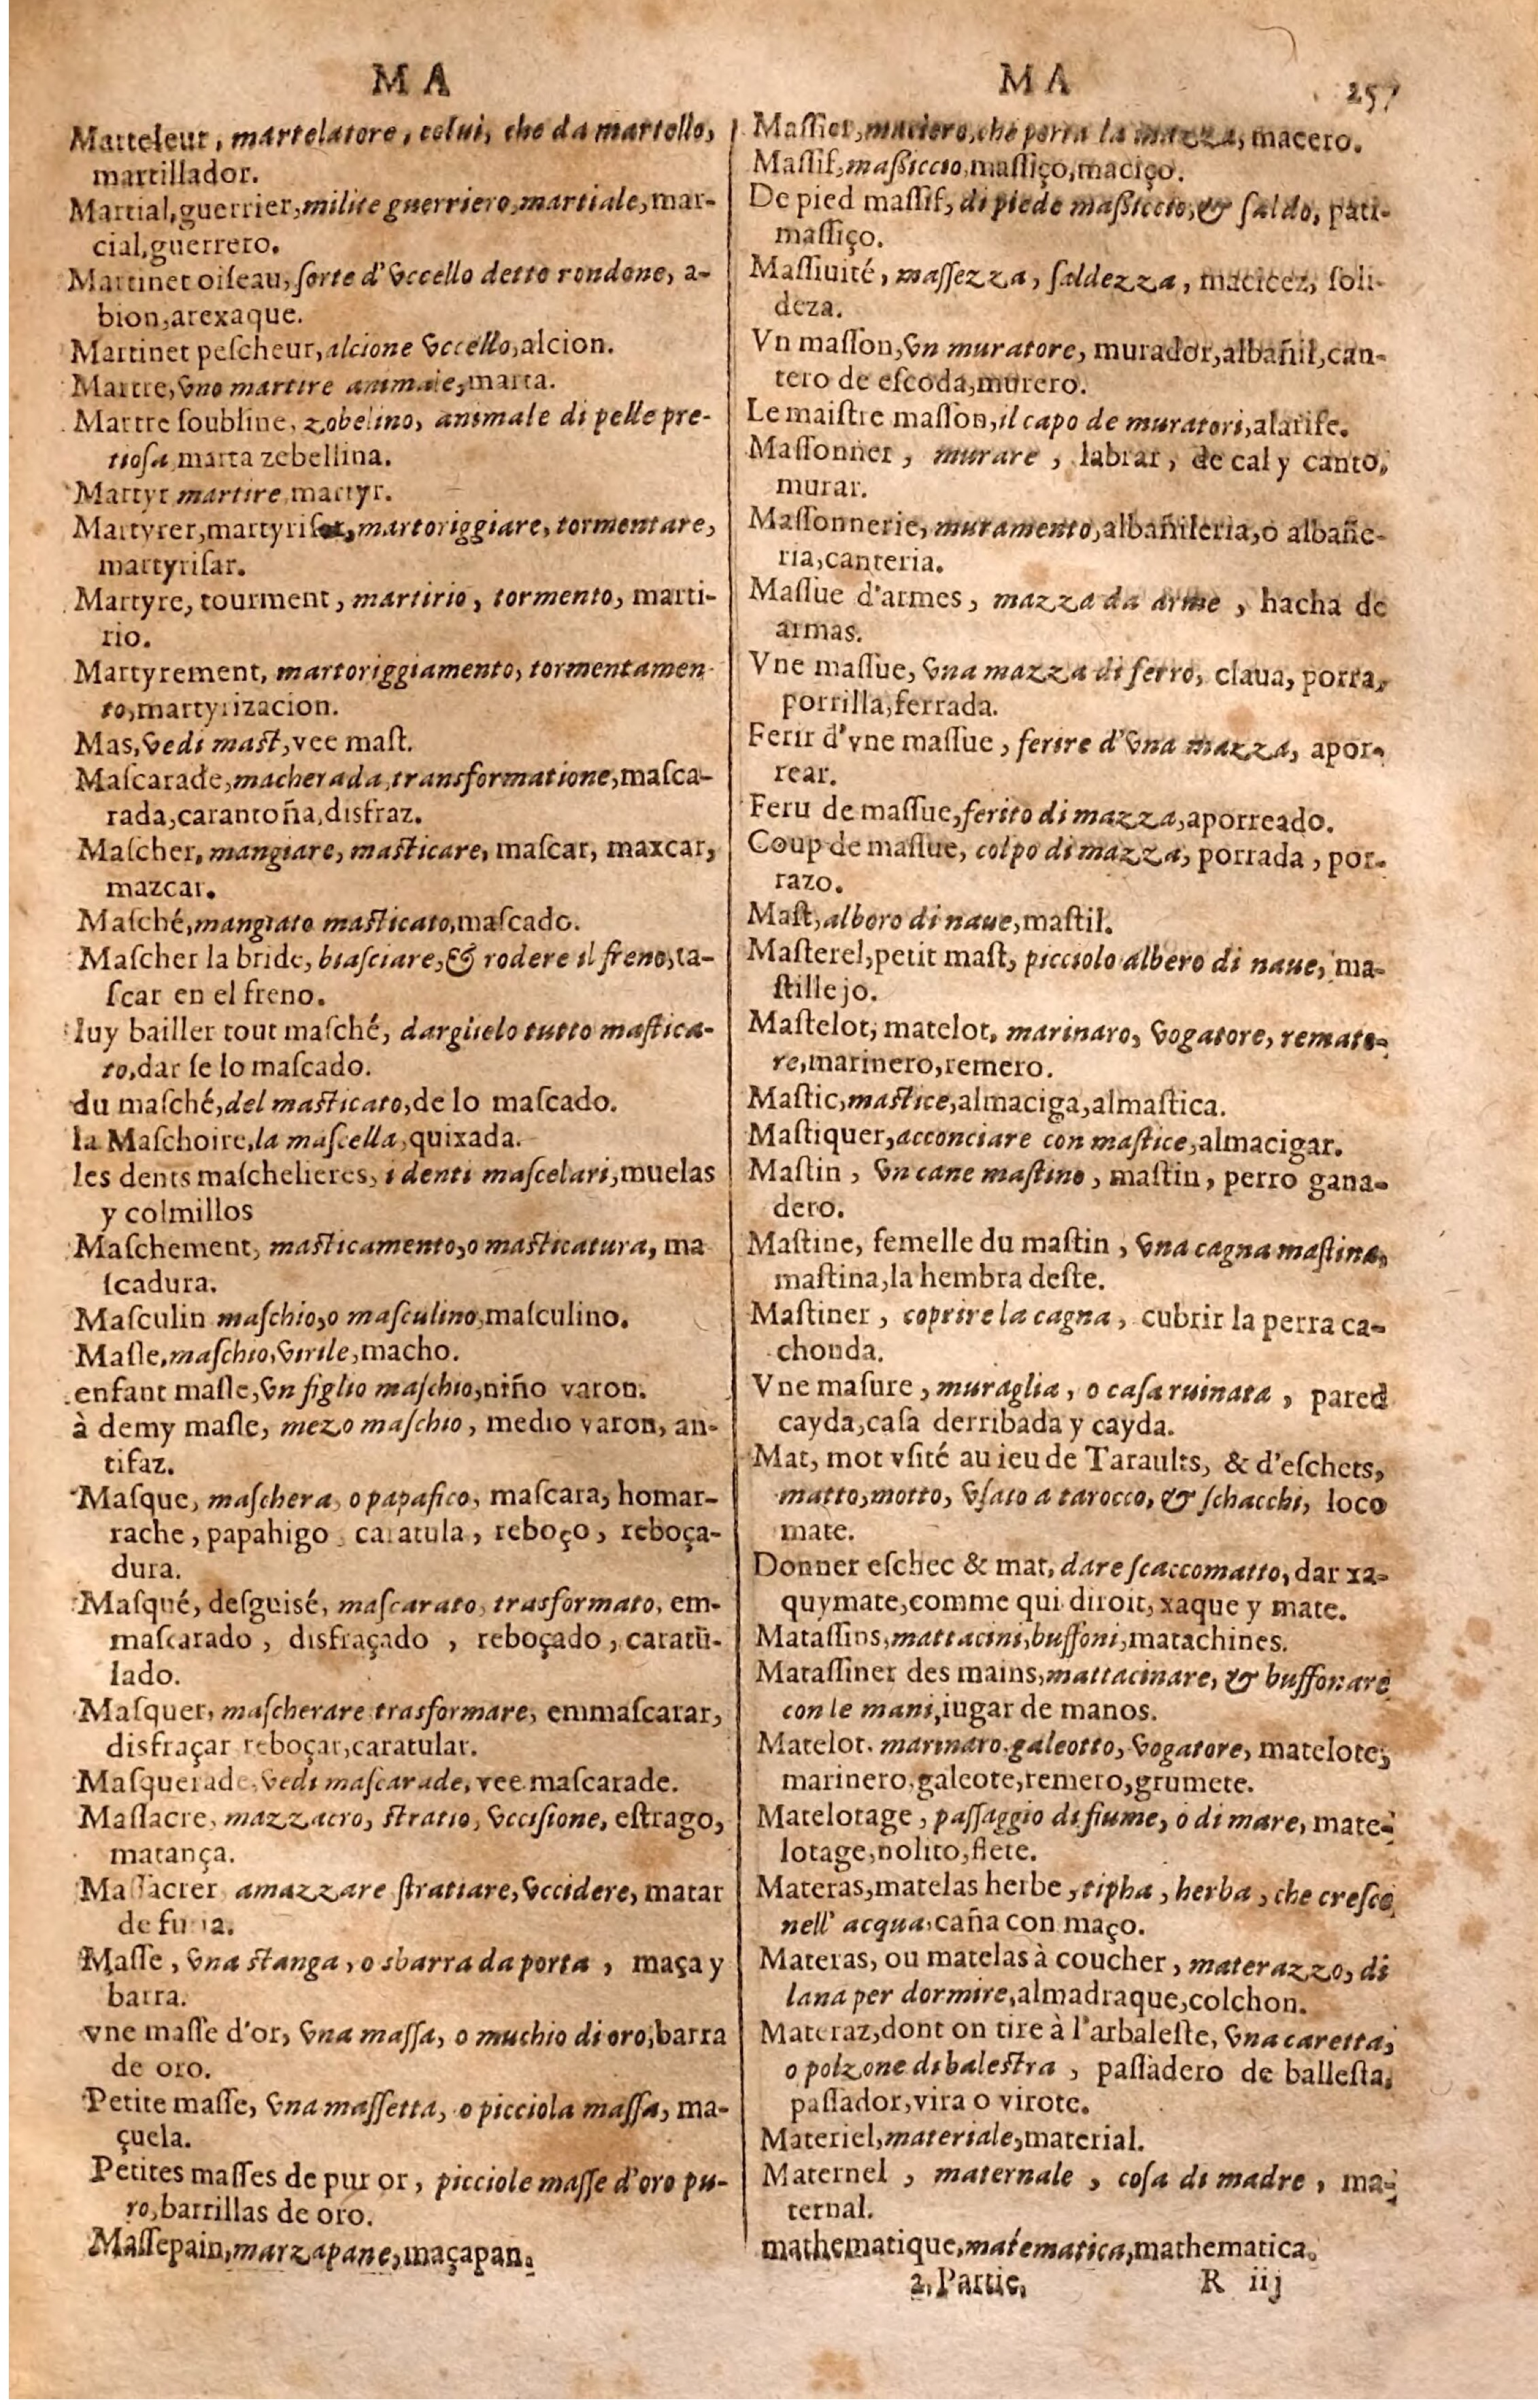 MA
Marteleur, martelatore, colui, che da martello,
martillador.
Martial, guerrier, milite guerriero, martiale, mar-
cial, guerrero.
Martinet oiſeau, ſorte d'vccello detto rondone, a-
bion, arexaque.
Martinet peſcheur, alcione vccello, alcion.
Martre, vno martire animale, marta.
Martre ſoubline, zobelino, animale di pelle pre-
tioſa marta zebellina.
Martyr martire martyr.
Martyrer, martyriſer, martoriggiare, tormentare,
martyriſar.
Martyre, tourment, martirio, tormento, marti-
rio.
Martyrement, martoriggiamento, tormentamen
to, martyrizacion.
Mas, vedi maſt, vee maſt.
Maſcarade, macherada, transformatione, maſca-
rada, carantoña, disfraz.
Maſcher, mangiare, maſticare, maſcar, maxcar,
mazcar.
Maſché, mangiato maſticato, maſcado.
Maſcher la bride, biaſciare, & rodere il freno, ta-
ſcar en el freno.
luy bailler tout maſché, dargüelo tutto maſtica-
to, dar ſe lo maſcado.
du maſché, del maſticato, de lo maſcado.
la Maſchoire, la maſcella, quixada.
les dents maſchelieres, i denti maſcelari, muelas
y colmillos
Maſchement, maſticamento, o maſticatura, ma
ſcadura.
Maſculin maſchio, o maſculino, maſculino.
Maſle, maſchio, virile, macho.
enfant maſle, vn figlio maſchio, niño varon.
à demy maſle, mezo maſchio, medio varon, an-
tifaz.
Maſque, maſchera, o papafico, maſcara, homar-
rache, papahigo, caratula, reboço, reboça-
dura.
Maſqué, deſguisé, maſcarato, trasformato, em-
maſcarado, disfraçado, reboçado, caratu-
lado.
Maſquer, maſcherare trasformare, emmaſcarar,
disfraçar reboçar, caratular.
Maſquerade, vedi maſcarade, vee maſcarade.
Maſſacre, mazzacro, ſtratio, vcciſione, eſtrago,
matança.
Maſſacrer amazzare ſtratiare, vccidere, matar
de furia.
Maſſe, vna ſtanga, o sbarra da porta, maça y
barra.
vne maſſe d'or, vna maſſa, o muchio di oro, barra
de oro.
Petite maſſe, vna maſſetta, o picciola maſſa, ma-
çuela.
Petites maſſes de pur or, picciole maſſe d'oro pu-
ro, barrillas de oro.
Maſſepain, marzapane, maçapan.
MA 257
Maſſier, maciero, che porta la mazza, macero.
Maſſif, maßiccio, maſſiço, maciço.
De pied maſſif, di piede maßiccio, & ſaldo, pati-
maſſiço.
Maſſiuité, maſſezza, ſaldezza, macicez, ſoli-
deza.
Vn maſſon, vn muratore, murador, albañil, can-
tero de eſcoda, murero.
Le maiſtre maſſon, il capo de muratori, alarife.
Maſſonner, murare, labrar, de cal y canto,
murar.
Maſſonnerie, muramento, albañileria, o albañe-
ria, canteria.
Maſſue d'armes, mazza da arme, hacha de
armas.
Vne maſſue, vna mazza di ferro, claua, porra,
porrilla, ferrada.
Ferir d'vne maſſue, ferire d'vna mazza, apor-
rear.
Feru de maſſue, ferito di mazza, aporreado.
Coup de maſſue, colpo di mazza, porrada, por-
razo.
Maſt, alboro di naue, maſtil.
Maſterel, petit maſt, picciolo albero di naue, ma-
ſtillejo.
Maſtelot, matelot, marinaro, vogatore, remato-
re, marinero, remero.
Maſtic, maſtice, almaciga, almaſtica.
Maſtiquer, acconciare con maſtice, almacigar.
Maſtin, vn cane maſtino, maſtin, perro gana-
dero.
Maſtine, femelle du maſtin, vna cagna maſtina,
maſtina, la hembra deſte.
Maſtiner, coprire la cagna, cubrir la perra ca-
chonda.
Vne maſure, muraglia, o caſa ruinata, pared
cayda, caſa derribada y cayda.
Mat, mot vſité au ieu de Taraults, & d'eſchets,
matto, motto, vſato a tarocco, & ſchacchi, loco
mate.
Donner eſchec & mat, dare ſcaccomatto, dar xa-
quymate, comme qui diroit, xaque y mate.
Mataſſins, mattacini, buffoni, matachines.
Mataſſiner des mains, mattacinare, & buffonare
con le mani, iugar de manos.
Matelot. marinaro. galeotto, vogatore, matelote,
marinero, galeote, remero, grumete.
Matelotage, paſſaggio di fiume, o di mare, mate-
lotage, nolito, flete.
Materas, matelas herbe, tipha, herba, che creſce
nell' acqua, caña con maço.
Materas, ou matelas à coucher, materazzo, di
lana per dormire, almadraque, colchon.
Materaz, dont on tire à l'arbaleſte, vna caretta,
o polzone di baleſtra, paſſadero de balleſta,
paſſador, vira o virote.
Materiel, materiale, material.
Maternel, maternale, coſa di madre, ma-
ternal.
mathematique, matematica, mathematica.
2. Partie. R iij